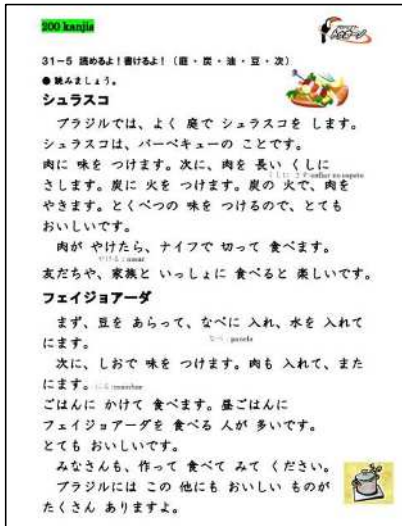 200 kanjis
31－5 読めるよ！書けるよ！（庭・炭・油・豆・次）
● 読みましょう。
シュラスコ
ブラジルでは、よく 庭で シュラスコを します。
シュラスコは、バーベキューの ことです。
肉に 味を つけます。次に、肉を 長い くしに
くしに さす:enfiar no espeto
さします。炭に 火を つけます。炭の 火で、肉を
やきます。とくべつの 味を つけるので、とても
おいしいです。
肉が やけたら、ナイフで 切って 食べます。
やける:assar
友だちや、家族と いっしょに 食べると 楽しいです。
フェイジョアーダ
まず、豆を あらって、なべに 入れ、水を 入れて
なべ:panela
にます。
次に、しおで 味を つけます。肉も 入れて、また
にます。にる:cozinhar
ごはんに かけて 食べます。昼ごはんに
フェイジョアーダを 食べる 人が 多いです。
とても おいしいです。
みなさんも、作って 食べて みて ください。
ブラジルには この 他にも おいしい ものが
たくさん ありますよ。